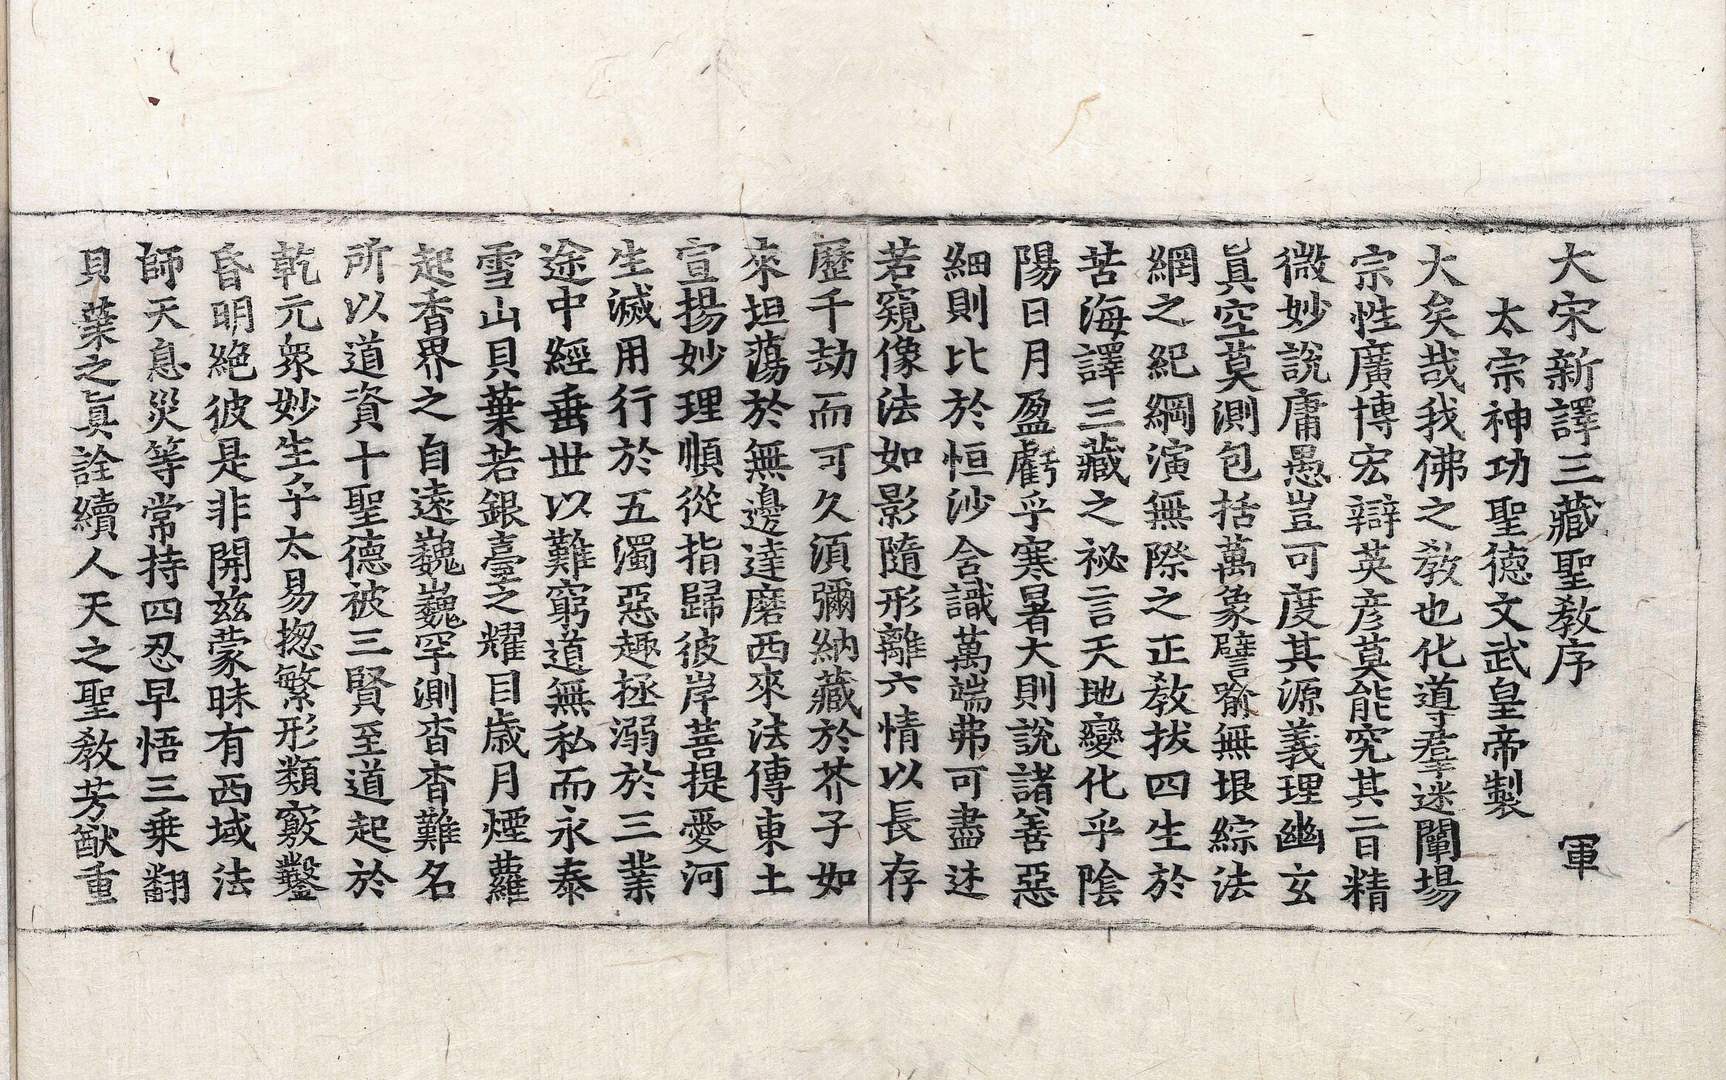 大宋新譯三藏聖敎序 軍
太宗神功聖德文武皇帝製
大矣哉我佛之敎也化導羣迷闡揚
宗性廣博宏辯英彦莫能究其旨精
微妙說庸愚豈可度其源義理幽玄
眞空莫測包括萬象譬喻無垠綜法
網之紀綱演無際之正敎拔四生於
苦海譯三藏之祕言天地變化乎陰
陽日月盈虧乎寒暑大則說諸善惡
細則比於恒沙含識萬端弗可盡述
若窺像法如影隨形離六情以長存
歷千劫而可久須彌納藏於芥子如
來坦蕩於無邊達磨西來法傳東土
宣揚妙理順從指歸彼岸菩提愛河
生滅用行於五濁惡趣拯溺於三業
途中經垂世以難窮道無私而永泰
雪山貝葉若銀臺之耀目歲月煙蘿
起香界之自遠巍巍罕測杳杳難名
所以道資十聖德被三賢至道起於
乾元衆妙生乎太易揔繁形類竅鑿
昏明絶彼是非開兹蒙昧有西域法
師天息災等常持四忍早悟三乗翻
貝葉之眞詮續人天之聖敎芳猷重